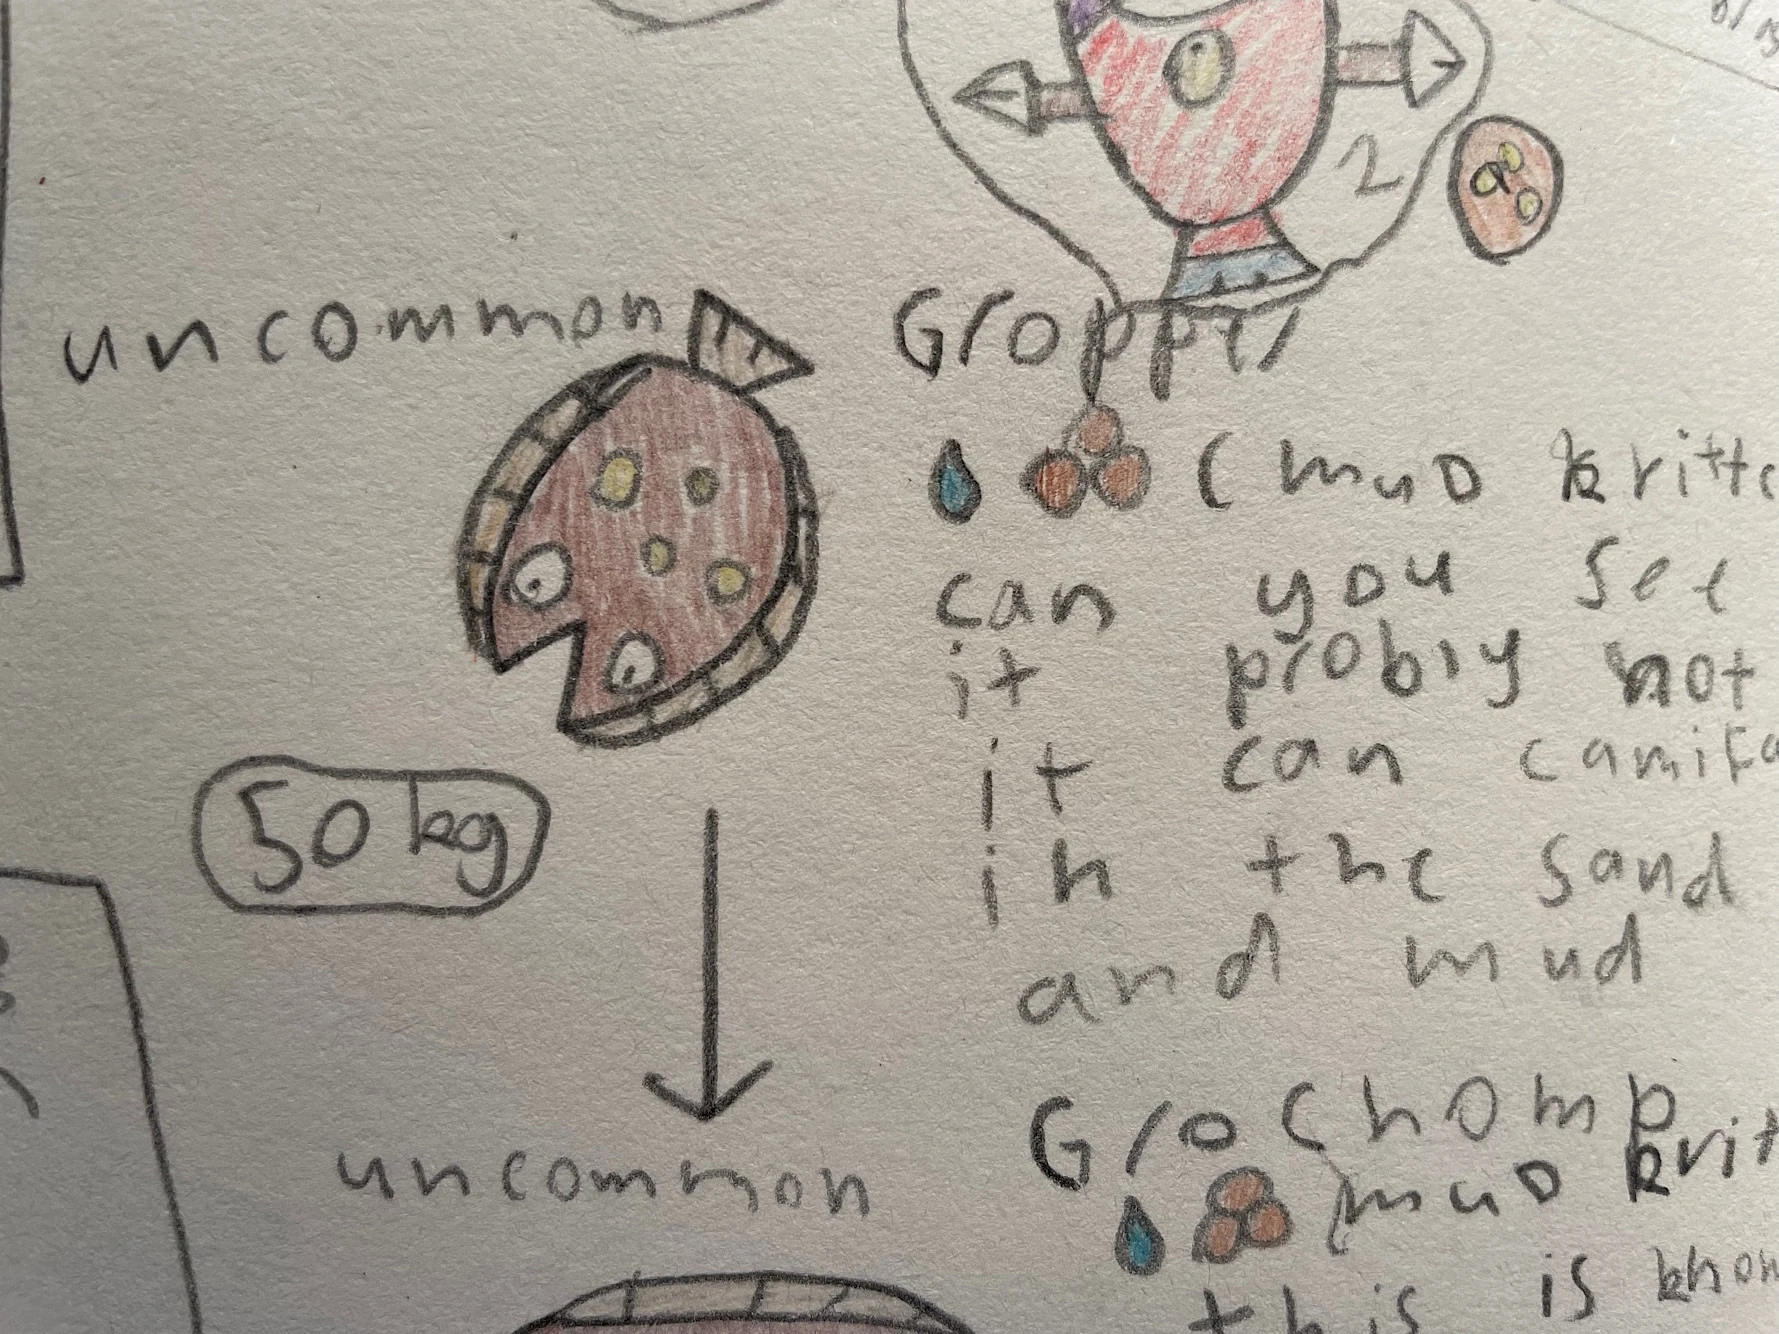 2
uncommon
Gropper
(muD kritte
can you see
it probly not
it can camifa
in the sand
and mud
50 kg
uncommon
Grochomp
(muD krit
this is know